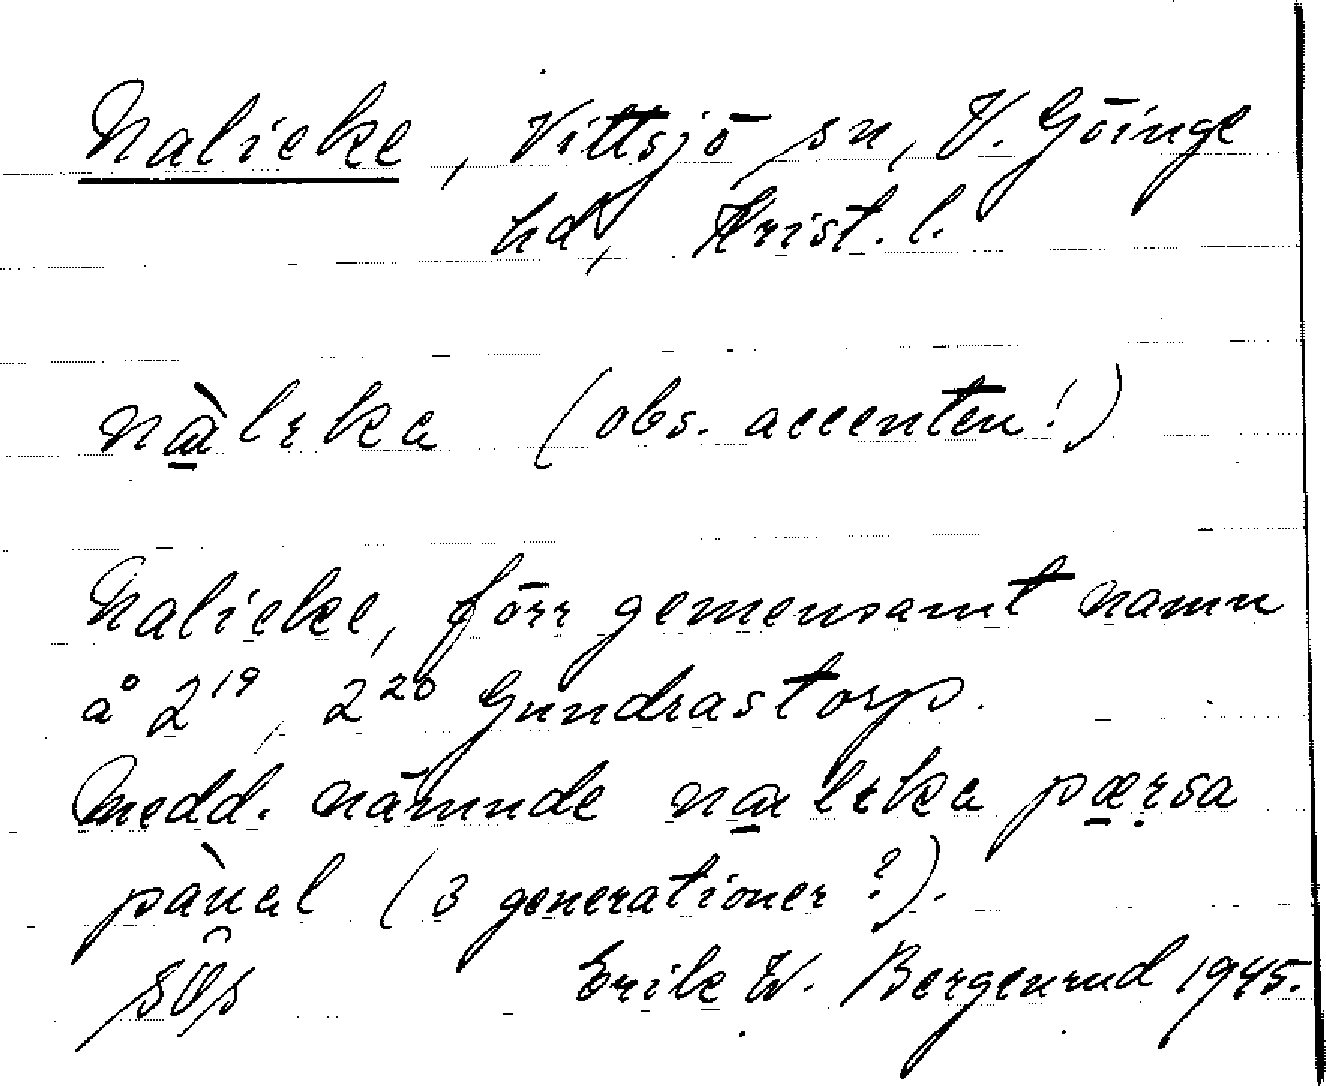 Nalicke, Vittsjö sn, V. Göinge
hd, Krist. l.
nàlıka (obs. accenten!)
Nalicke, förr gemensamt namn
å 2¹⁹, 2²⁰ Gundrastorp.
Medd. nämnde nalıka pærsa
pàual (3 generationer?).
Erik W. Bergenrud 1945.